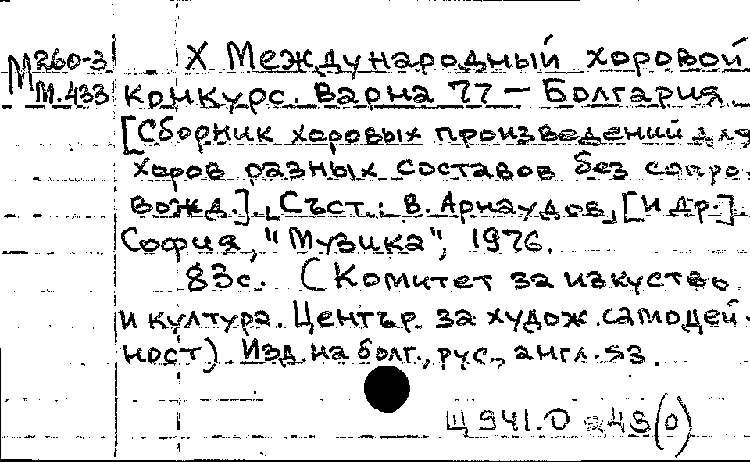 М 260-3
М.433
X Международный хоровой
конкурс. Варна 77 - Болгария
[Сборник хоровых произведений для
хоров разных составов без сопро-
вожд.]. Съст.: В. Арнаудов, [и др.].
София, "Музика", 1976.
83с. (Комитет за изкуство
и култура. Център за худож. самодей-
ност) Изд. на болг., рус., англ. яз.
Щ 941.0